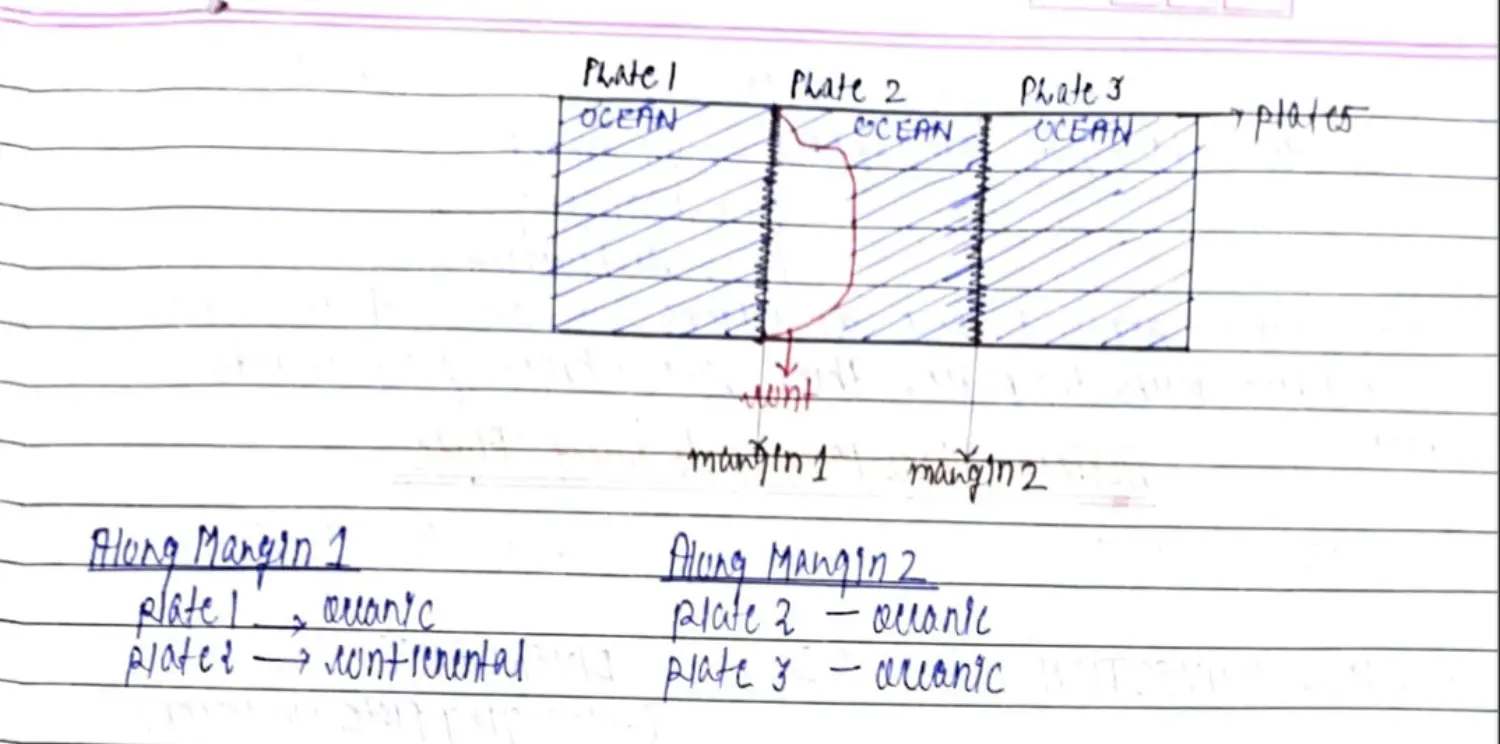 Plate 1 Plate 2 Plate 3
OCEAN OCEAN OCEAN → plates
cont
margin 1 margin 2
Along Margin 1 Along Margin 2
plate 1 → oceanic plate 2 - oceanic
plate 2 → continental plate 3 - oceanic